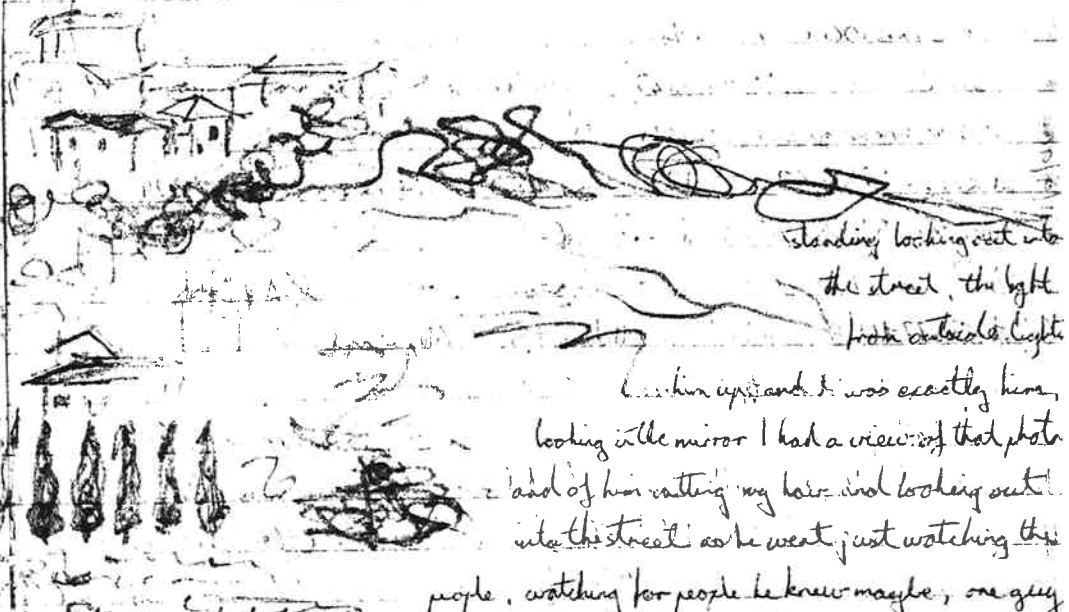 standing looking out into
the street, the light
from outside lights
him up, and I was exactly him,
looking in the mirror I had a view of that photo
and of him cutting my hair and looking out
into the street as he went, just watching the
people, watching for people he knew maybe, one guy